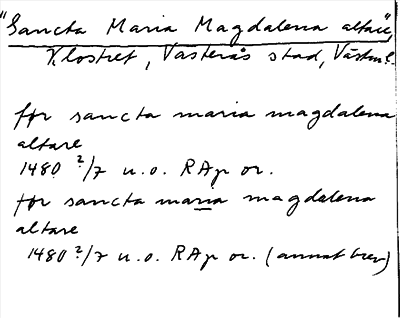 "Sancta Maria Magdalena altare",
Klostret, Västerås stad, Västml.
för sancta maria magdalena
altare
1480 2/7 u.o. RAp or.
för sancta maria magdalena
altare
1480 2/7 u.o. RAp or. (annat brev)